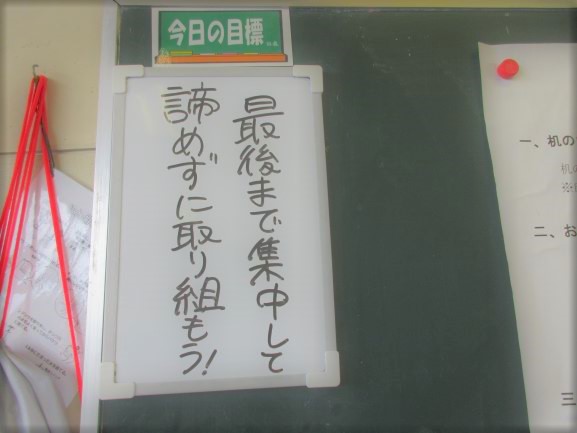 今日の目標
最後まで集中して
諦めずに取り組もう!
一、机の
二、お
三